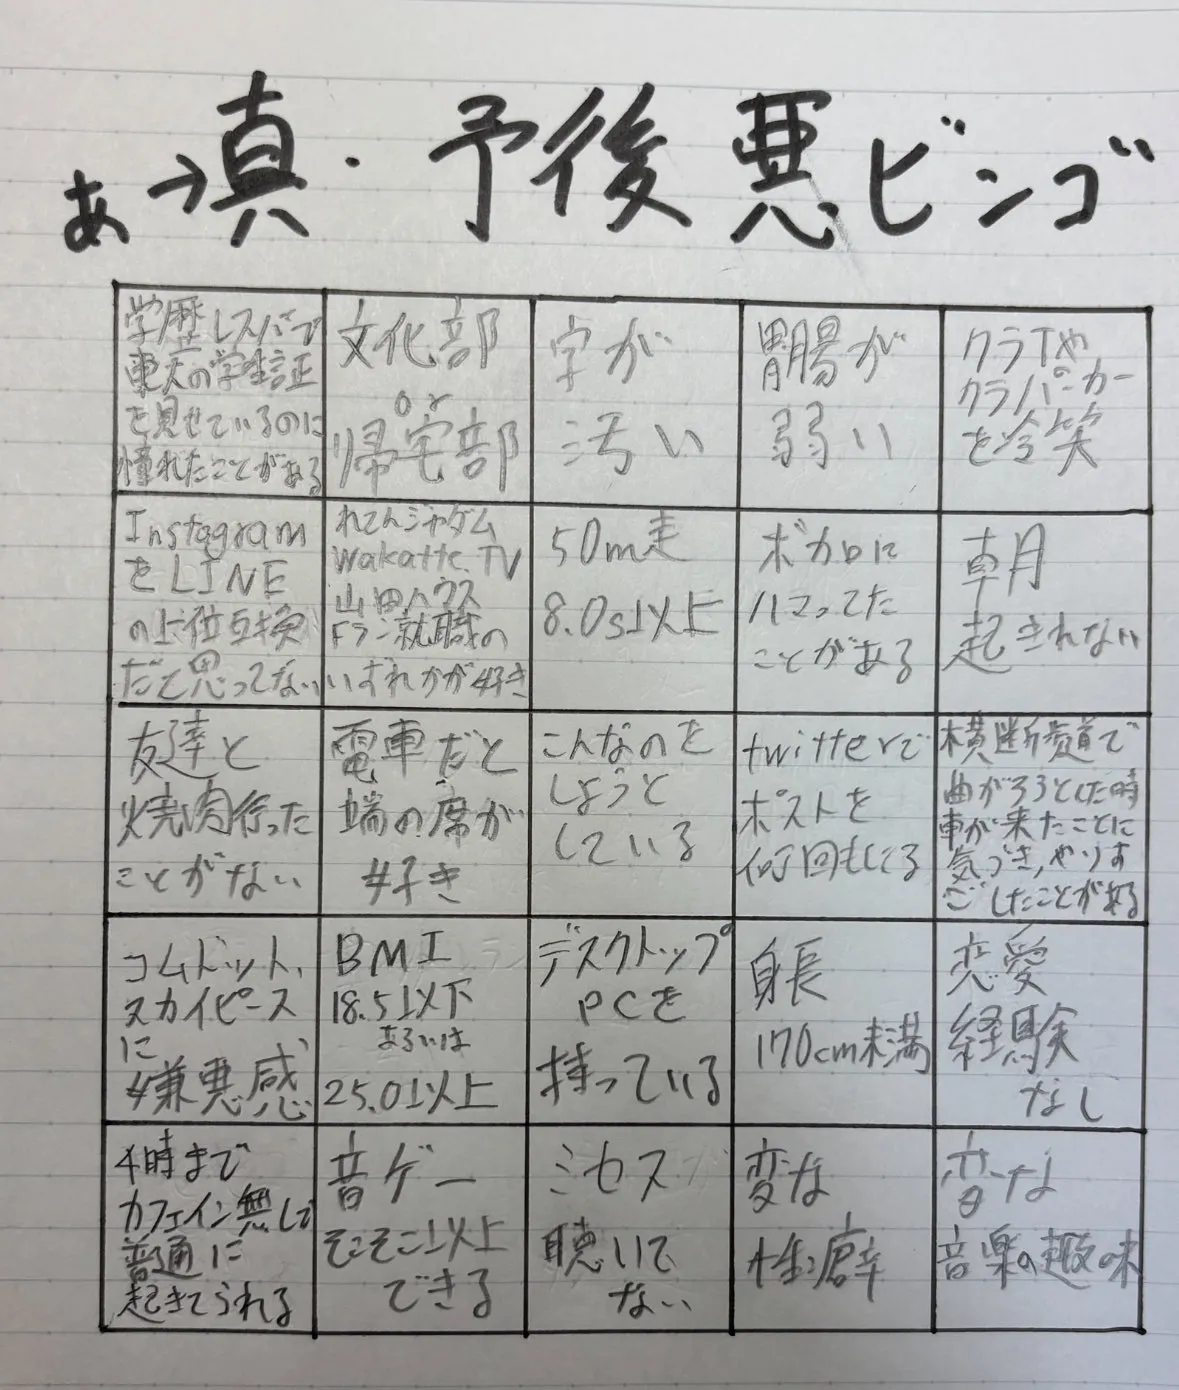 あっ→真・予後悪ビンゴ
学歴レスバで
東大の学生証
を見せているのに
憧れたことがある
文化部
or
帰宅部
字が
汚い
胃腸が
弱い
クラTや
クラパーカー
を冷笑
Instagram
をLINE
の上位互換
だと思ってない
れてんジャダム
Wakatte.TV
山田ハウス
Fラン就職の
いずれかが好き
50m走
8.0s以上
ボカロに
ハマってた
ことがある
朝
起きれない
友達と
焼肉行った
ことがない
電車だと
端の席が
好き
こんなのを
しようと
している
twitterで
ポストを
何回もしてる
横断歩道で
曲がろうとした時
車が来たことに
気づき、やりす
ごしたことがある
コムドット、
スカイピース
に
嫌悪感
BMI
18.5以下
あるいは
25.0以上
デスクトップ
PCを
持っている
身長
170cm未満
恋愛
経験
なし
4時まで
カフェイン無しで
普通に
起きてられる
音ゲー
そこそこ以上
できる
ミセス
聴いて
ない
変な
性癖
変な
音楽の趣味